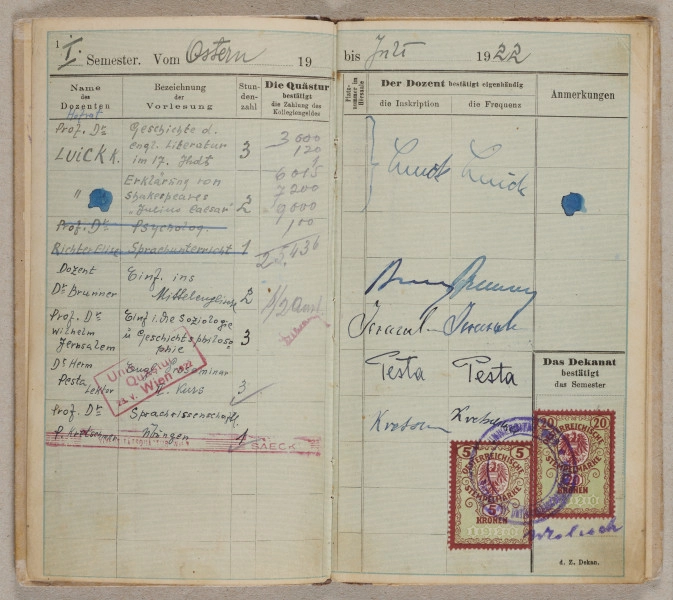 1
I. Semester. Vom Ostern 19
Name
des
Dozenten
Bezeichnung
der
Vorlesung
Stun-
den-
zahl
Die Quästur
bestätigt
die Zahlung des
Kollegiengeldes
Hofrat
Prof. Dr Geschichte d.
LUICK K. engl. Literatur 3
im 17. Jhdt
Erklärung von
" Shakespeares
"Julius Caesar" 2
Prof. Dr Psycholog.
Richter Elise Sprachunterricht 1
Dozent Einf. ins
Dr Brunner Mittelenglische 2
Prof. Dr Einf. i. die Soziologie
Wilhelm u Geschichtsphiloso 3
Jerusalem phie
Dr Herm
Pesta Lektor Kurs 3
Prof. Dr Sprachwissenschaftl.
P. Kretschmer Übungen 1
3000
120
1
6015
7200
9000
100
25.436
Quästur
Wien 1922
bis Juli 1922
Platz-
nummer im
Hörsaale
Der Dozent bestätigt eigenhändig
die Inskription
die Frequenz
Anmerkungen
Luick Luick
Brunner Brunner
Jerusalem Jerusalem
Pesta Pesta
Kretschmer Kretschmer
Das Dekanat
bestätigt
das Semester
5 5
ÖSTERREICHISCHE
STEMPELMARKE
5
KRONEN
20 20
ÖSTERREICHISCHE
STEMPELMARKE
20
KRONEN
d. Z. Dekan.